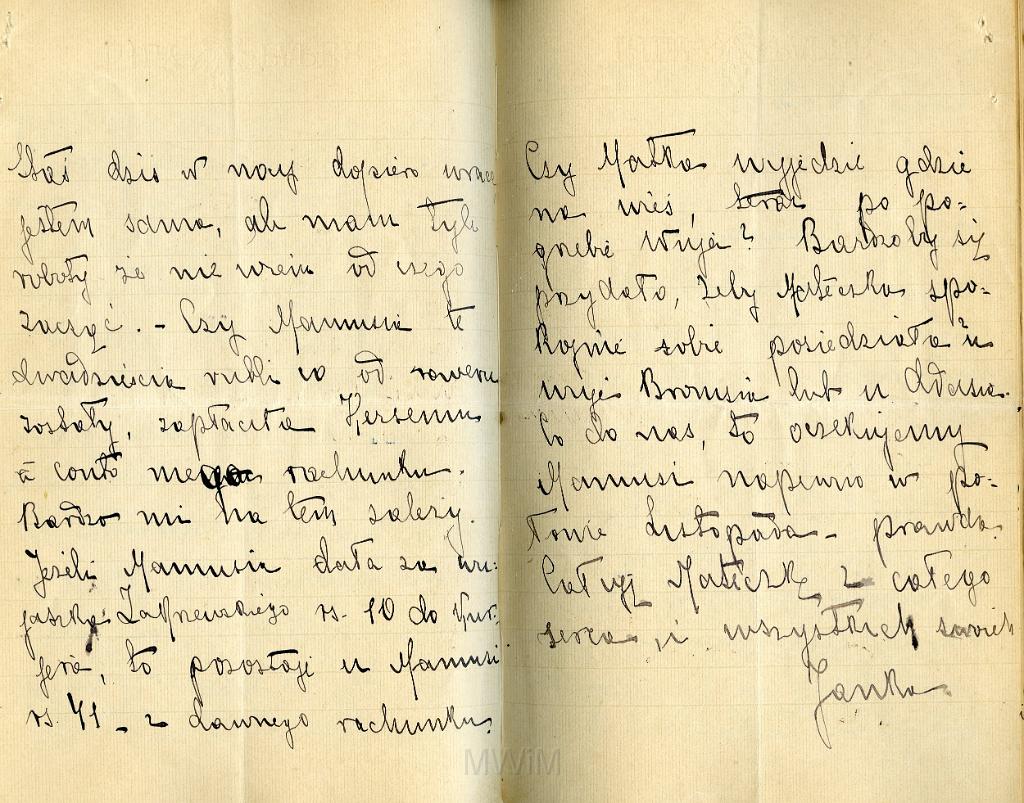 Staś dziś w nocy dopiero wraca
jestem sama, ale mam tyle
roboty że nie wiem od czego
zacząć. - Czy Mamusia te
dwadzieścia rubli co od roweru
zostały, zapłaciła Herсemu
à conto mego rachunku.
Bardzo mi na tem zależy.
Jeżeli Mamusia dała za wu-
jaszka Zakrzewskiego rs. 10 do Kur-
jera, to pozostaje u Mamusi
rs. 41 - z dawnego rachunku.
Czy Matka wyjedzie gdzie
na wieś, teraz po po-
grzebie Wuja? Bardzoby się
przydało, żeby Mateczka spo-
kojnie sobie posiedziała u
wuja Bronisia lub u Adasia.
Co do nas, to oczekujemy
Mamusi napewno w po-
łowie Listopada - prawda.
Całuję Mateczkę z całego
serca, i wszystkich swoich
Janka
MWiM